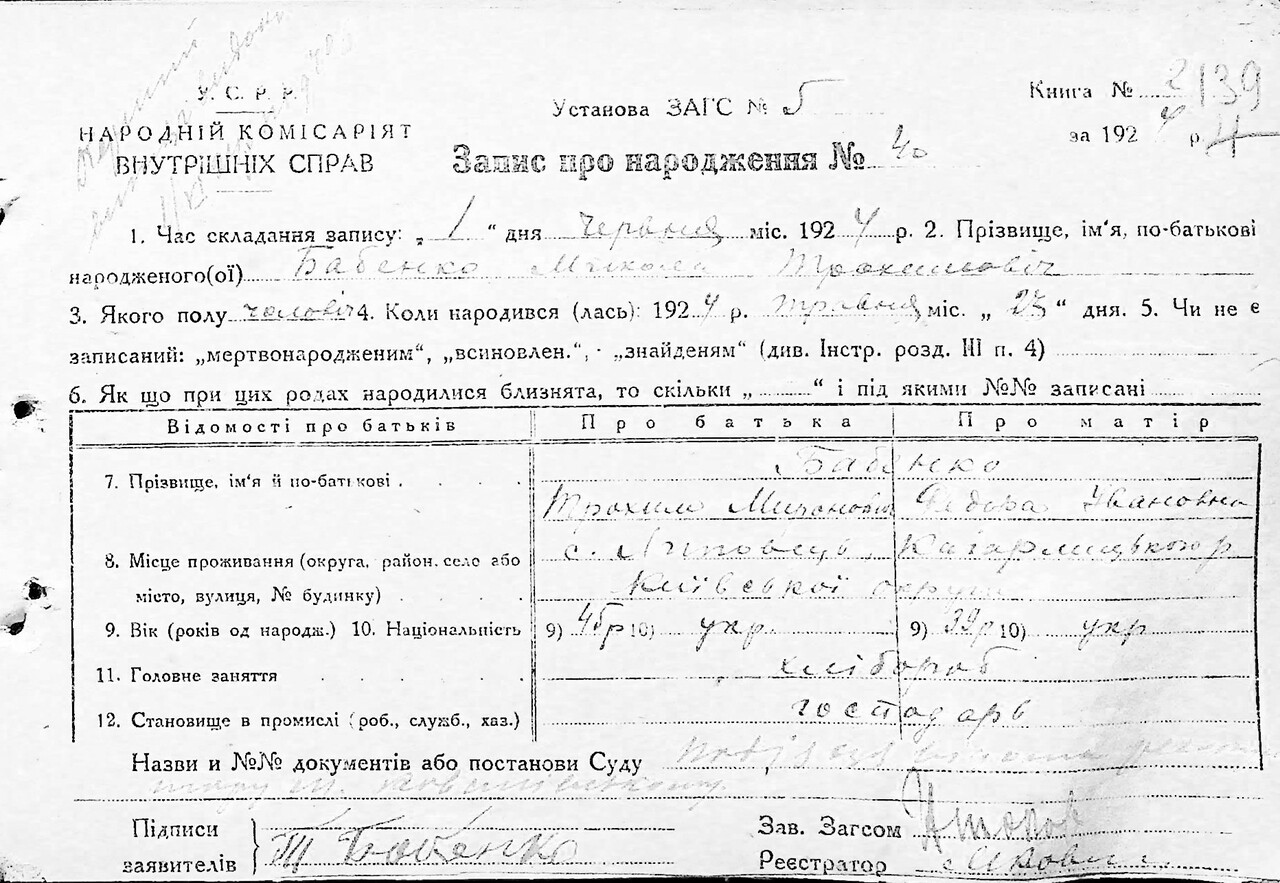 У. С. Р. Р.
НАРОДНІЙ КОМІСАРІЯТ
ВНУТРІШНІХ СПРАВ
Установа ЗАГС № 5
Запис про народження № 40
Книга № 2 139
за 1924 р. 4
1. Час складання запису: „ 1 “ дня червня міс. 1924 р. 2. Прізвище, ім'я, по-батькові
народженого(ої) Бабенко Микола Трохимовіч
3. Якого полу чоловіч 4. Коли народився (лась): 1924 р. травня міс. „ 27 “ дня. 5. Чи не є
записаний: „мертвонародженим“, „всиновлен.“, „знайденям“ (див. Інстр. розд. III п. 4)
6. Як що при цих родах народилися близнята, то скільки „ “ і під якими №№ записані
Відомості про батьків Про батька Про матір
7. Прізвище, ім'я й по-батькові . . . . Бабенко
Трохим Федора Ивановна
8. Місце проживання (округа, район, село або с. Липовець, Кагарлицького р
місто, вулиця, № будинку) . . . . Київської округи
9. Вік (років од народж.) 10. Національність 9) 45р 10) укр. 9) 39р 10) укр
11. Головне заняття . . . . . хлібороб
12. Становище в промислі (роб., служб., хаз.) господарь
Назви и №№ документів або постанови Суду
Підписи
заявителів Т Бабенко
Зав. Загсом
Реєстратор